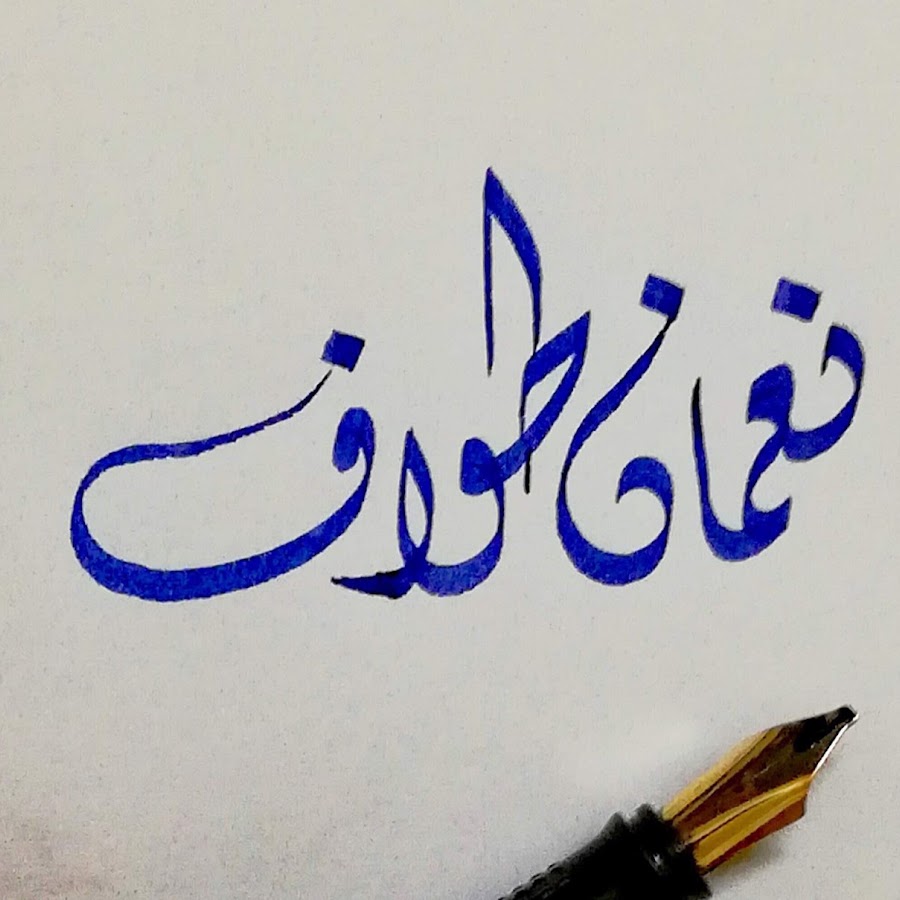 نعمان طواف